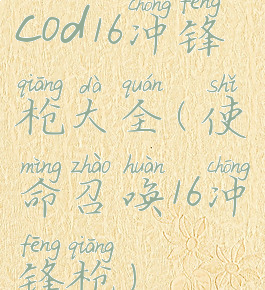 chōng fēng
cod16冲锋
qiāng dà quán shǐ
枪大全(使
mìng zhào huàn chōng
命召唤16冲
fēng qiāng
锋枪)